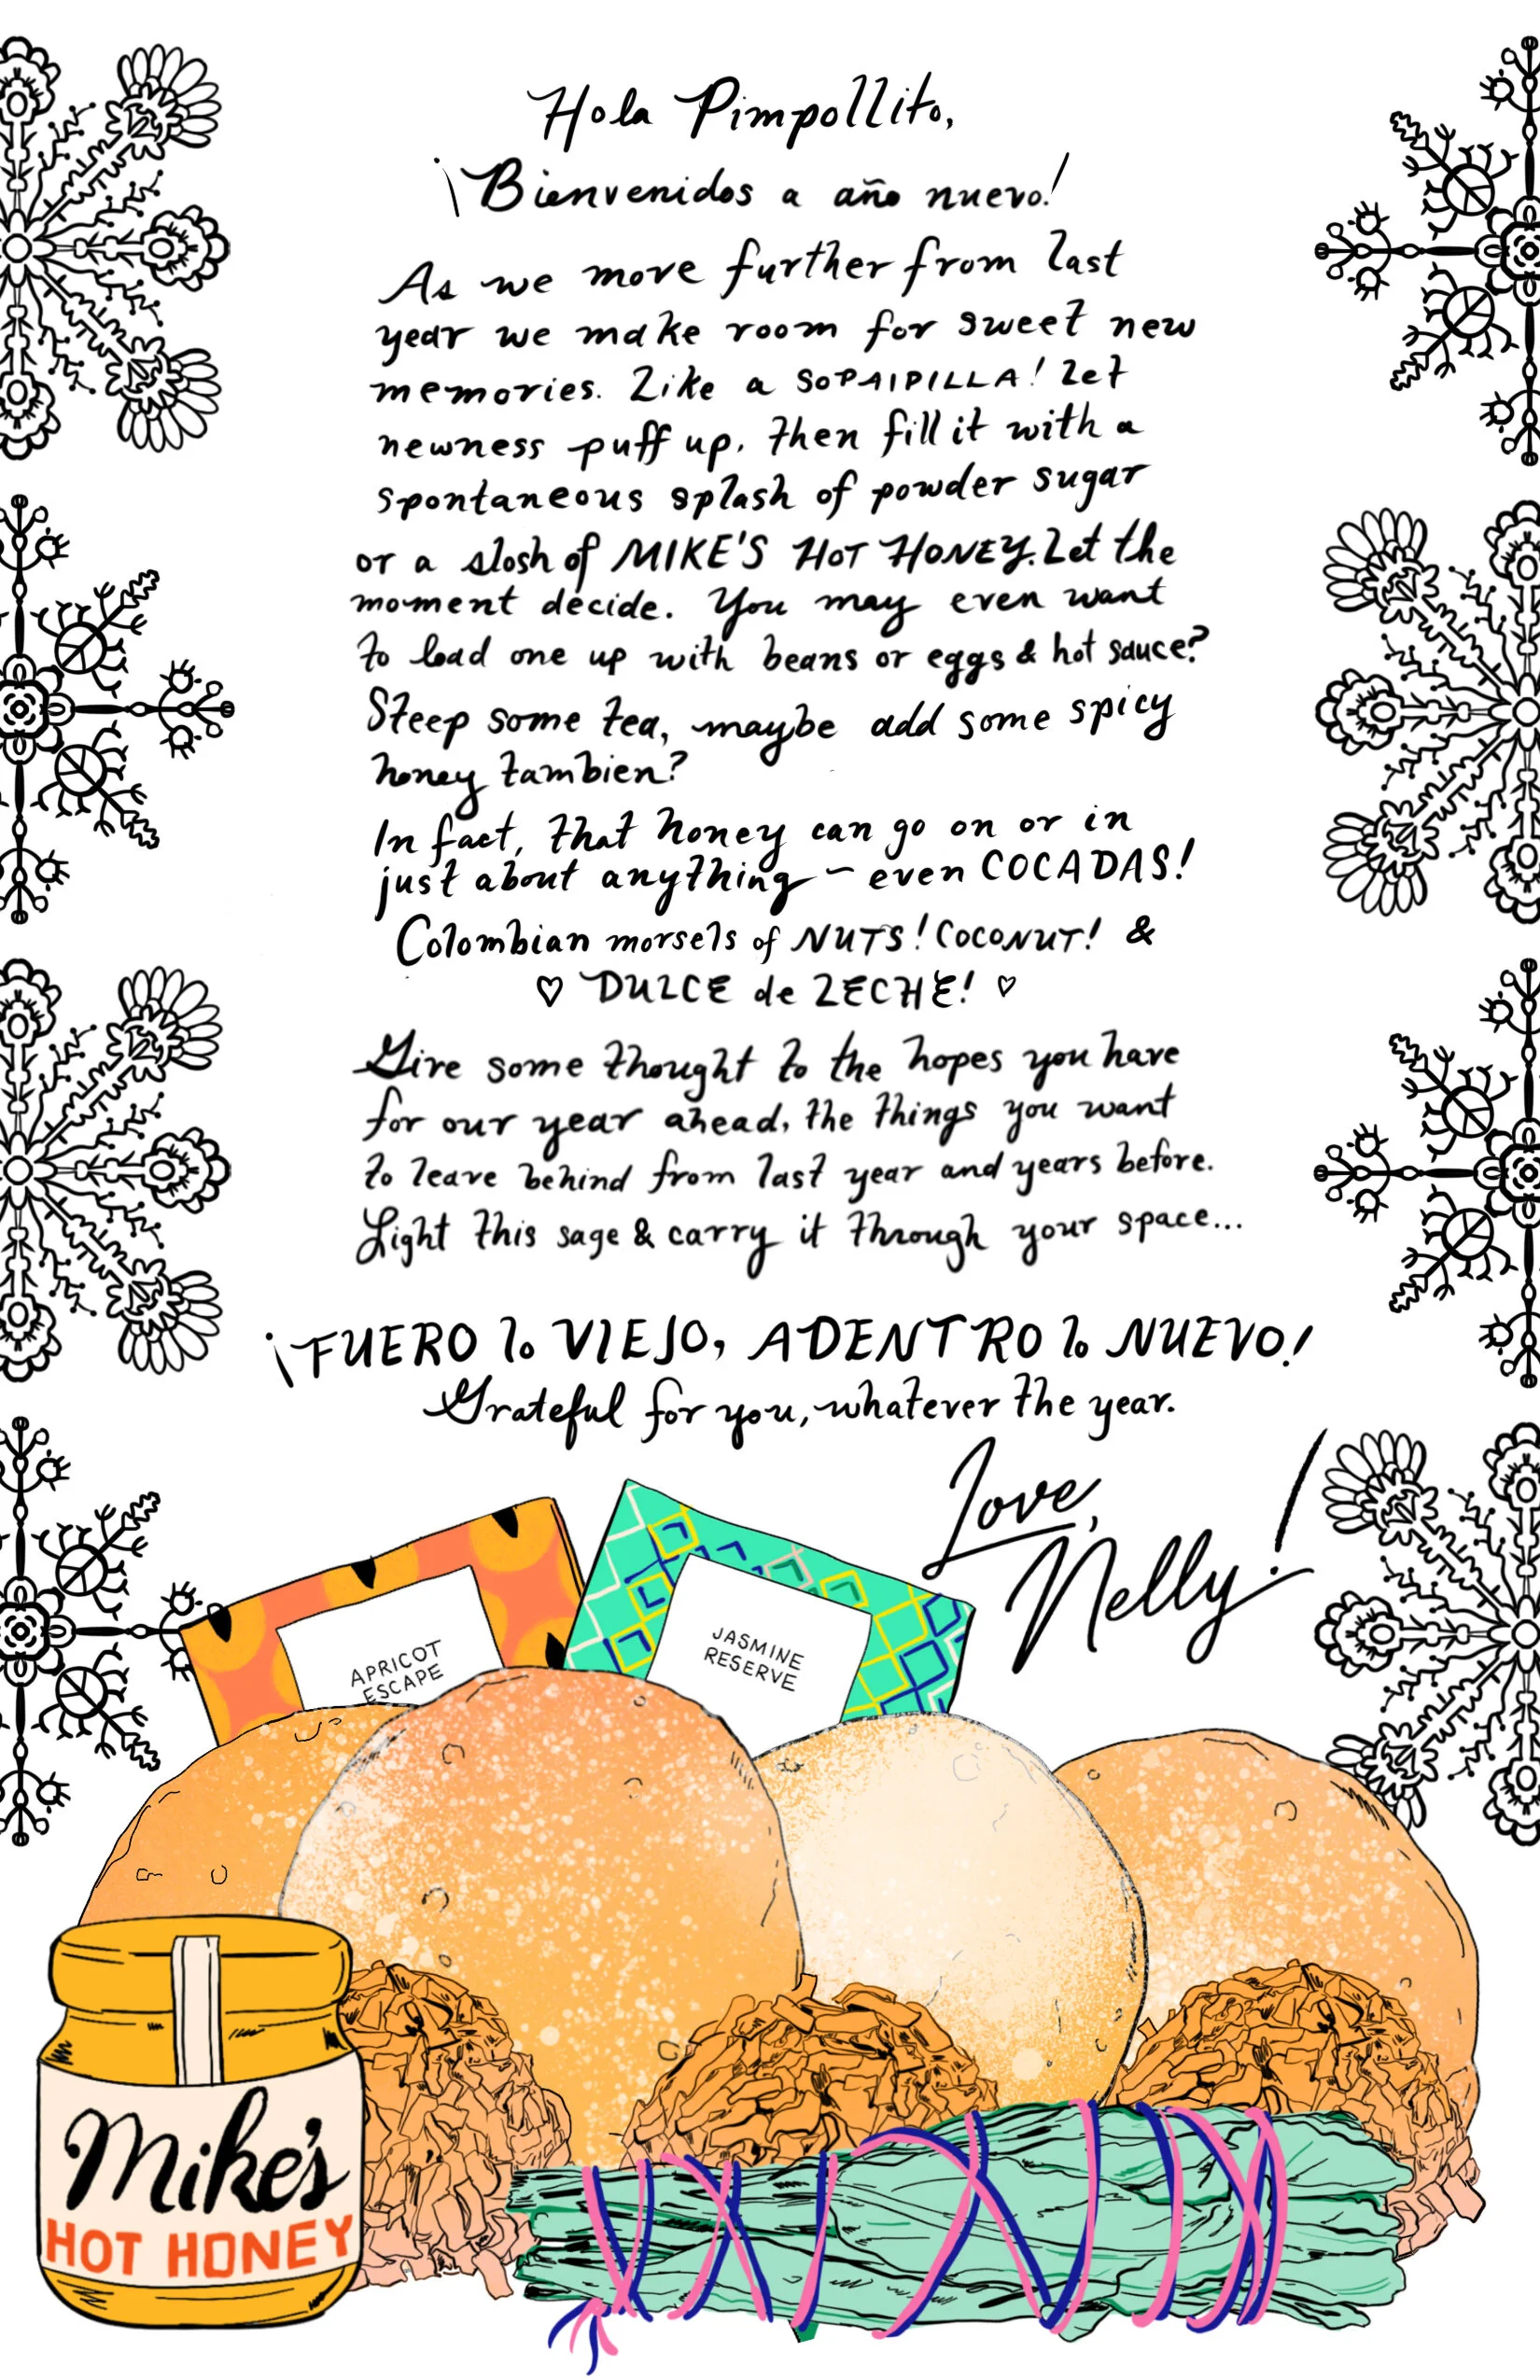 Hola Pimpollito,
¡Bienvenidos a año nuevo!
As we move further from last
year we make room for sweet new
memories. Like a SOPAIPILLA! Let
newness puff up, then fill it with a
spontaneous splash of powder sugar
or a slosh of MIKE'S HOT HONEY. Let the
moment decide. You may even want
to load one up with beans or eggs & hot sauce?
Steep some tea, maybe add some spicy
honey tambien?
In fact, that honey can go on or in
just about anything - even COCADAS!
Colombian morsels of NUTS! COCONUT! &
♡ DULCE de LECHE! ♡
Give some thought to the hopes you have
for our year ahead, the things you want
to leave behind from last year and years before.
Light this sage & carry it through your space...
¡FUERO lo VIEJO, ADENTRO lo NUEVO!
Grateful for you, whatever the year.
Love,
Nelly!
APRICOT
ESCAPE
JASMINE
RESERVE
Mike's
HOT HONEY